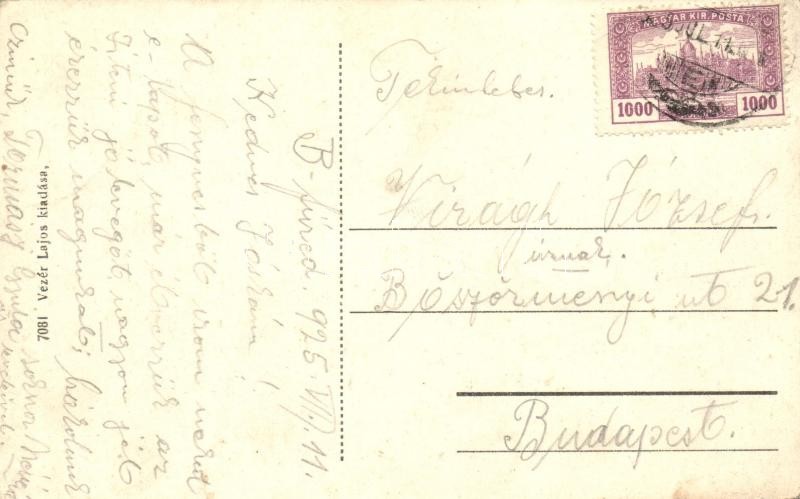 MAGYAR KIR. POSTA
1000 1000
Tekintetes.
Virágh József.
úrnak.
Böszörményi út 21.
Budapest.
B-füred. 925. VII. 11.
Kedves Jóskám!
A fenyvesből írom neked
e-lapot, már élvezzük az
jó levegőt, nagyon jól
érezzük magunkat;
Címünk,
7081 Vezér Lajos kiadása,